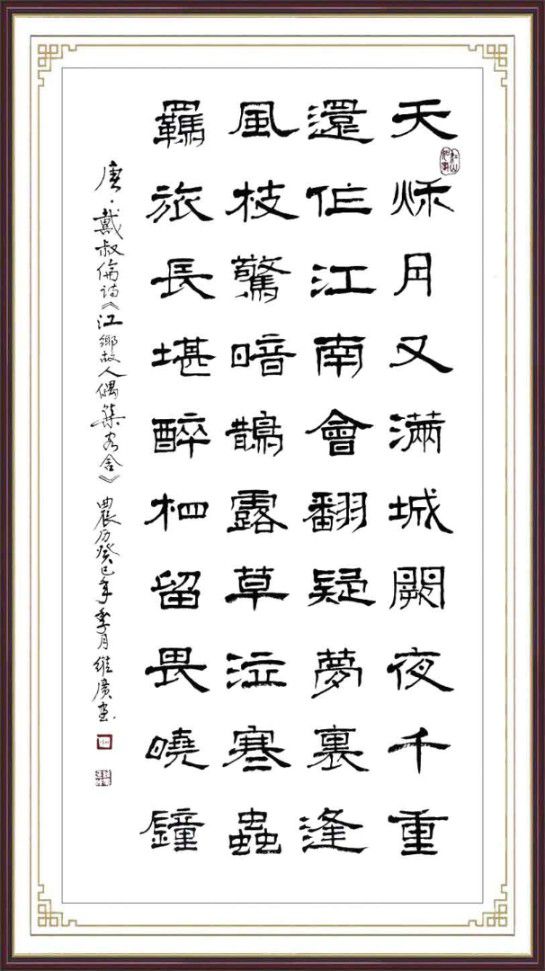 天秋月又滿城闕夜千重
還作江南會翻疑夢裏逢
風枝驚暗鵲露草泣寒蟲
羈旅長堪醉相留畏曉鐘
唐·戴叔倫詩《江鄉故人偶集客舍》 農历癸巳年季月維廣書